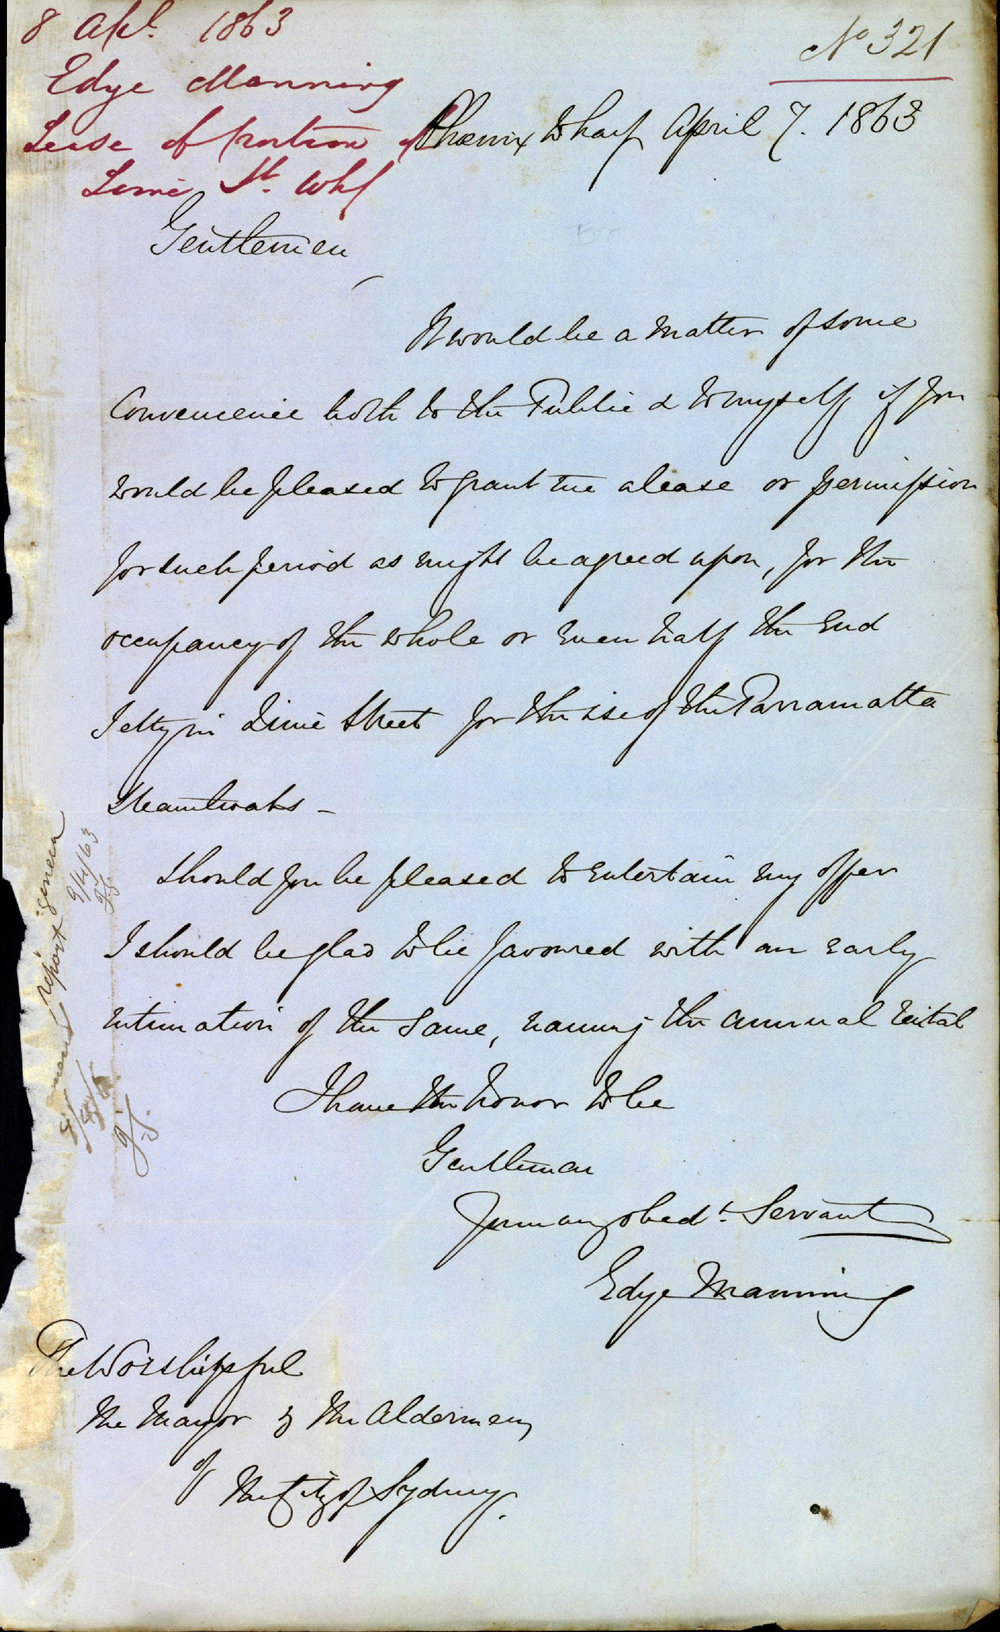 8 Apl. 1863
Edye Manning
Lease of portion of
Lime St. Whf
No 321
Phoenix Wharf April 7. 1863
Gentlemen,
It would be a matter of some
Convenience both to the Public & to myself if you
would be pleased to grant me a lease or permission
for such period as might be agreed upon, for the
occupancy of the whole or even half the End
Jetty in Lime Street for the use of the Parramatta
Steamboats –
Should you be pleased to entertain my offer
I should be glad to be favoured with an early
intimation of the same, naming the annual rental
I have the honor to be
Gentlemen
Your many obedt. Servant
Edye Manning
The Worshipful
The Mayor & the Aldermen
of
the City of Sydney.
report
9/4/63